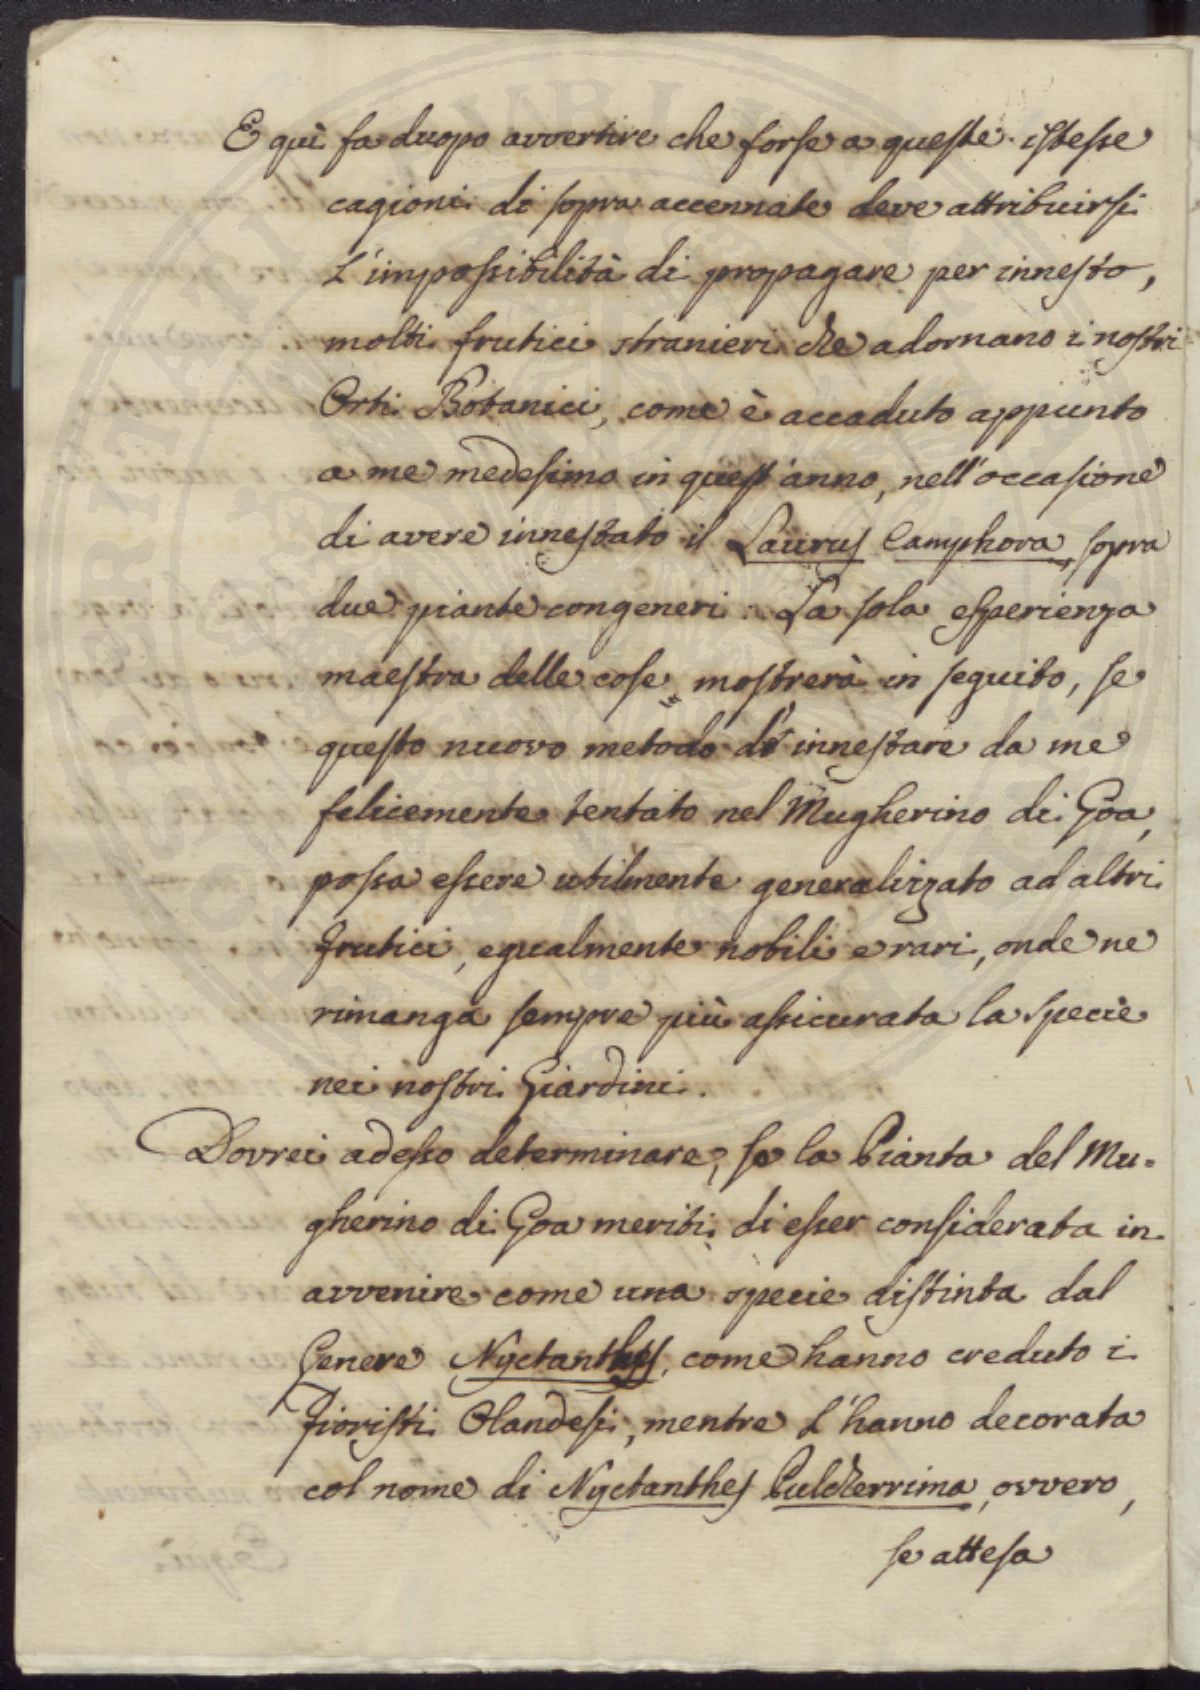 E quì fa duopo avvertire che forse a queste istesse
cagioni di sopra accennate deve attribuirsi
l'impossibilità di propagare per innesto,
molti frutici stranieri che adornano i nostri
Orti Botanici, come è accaduto appunto
a me medesimo in quest'anno, nell'occasione
di avere innestato il Laurus Camphora, sopra
due piante congeneri. La sola esperienza
maestra delle cose, mostrerà in seguito, se
questo nuovo metodo d'innestare da me
felicemente tentato nel Mugherino di Goa,
possa essere utilmente generalizzato ad altri
frutici, egualmente nobili e rari, onde ne
rimanga sempre più assicurata la specie
nei nostri Giardini.
Dovrei adesso determinare, se la Pianta del Mu=
gherino di Goa meriti di esser considerata in
avvenire come una specie distinta dal
Genere Nyctanthes, come hanno creduto i
Fioristi Olandesi, mentre l'hanno decorata
col nome di Nyctanthes Pulcherrima, ovvero,
se attesa